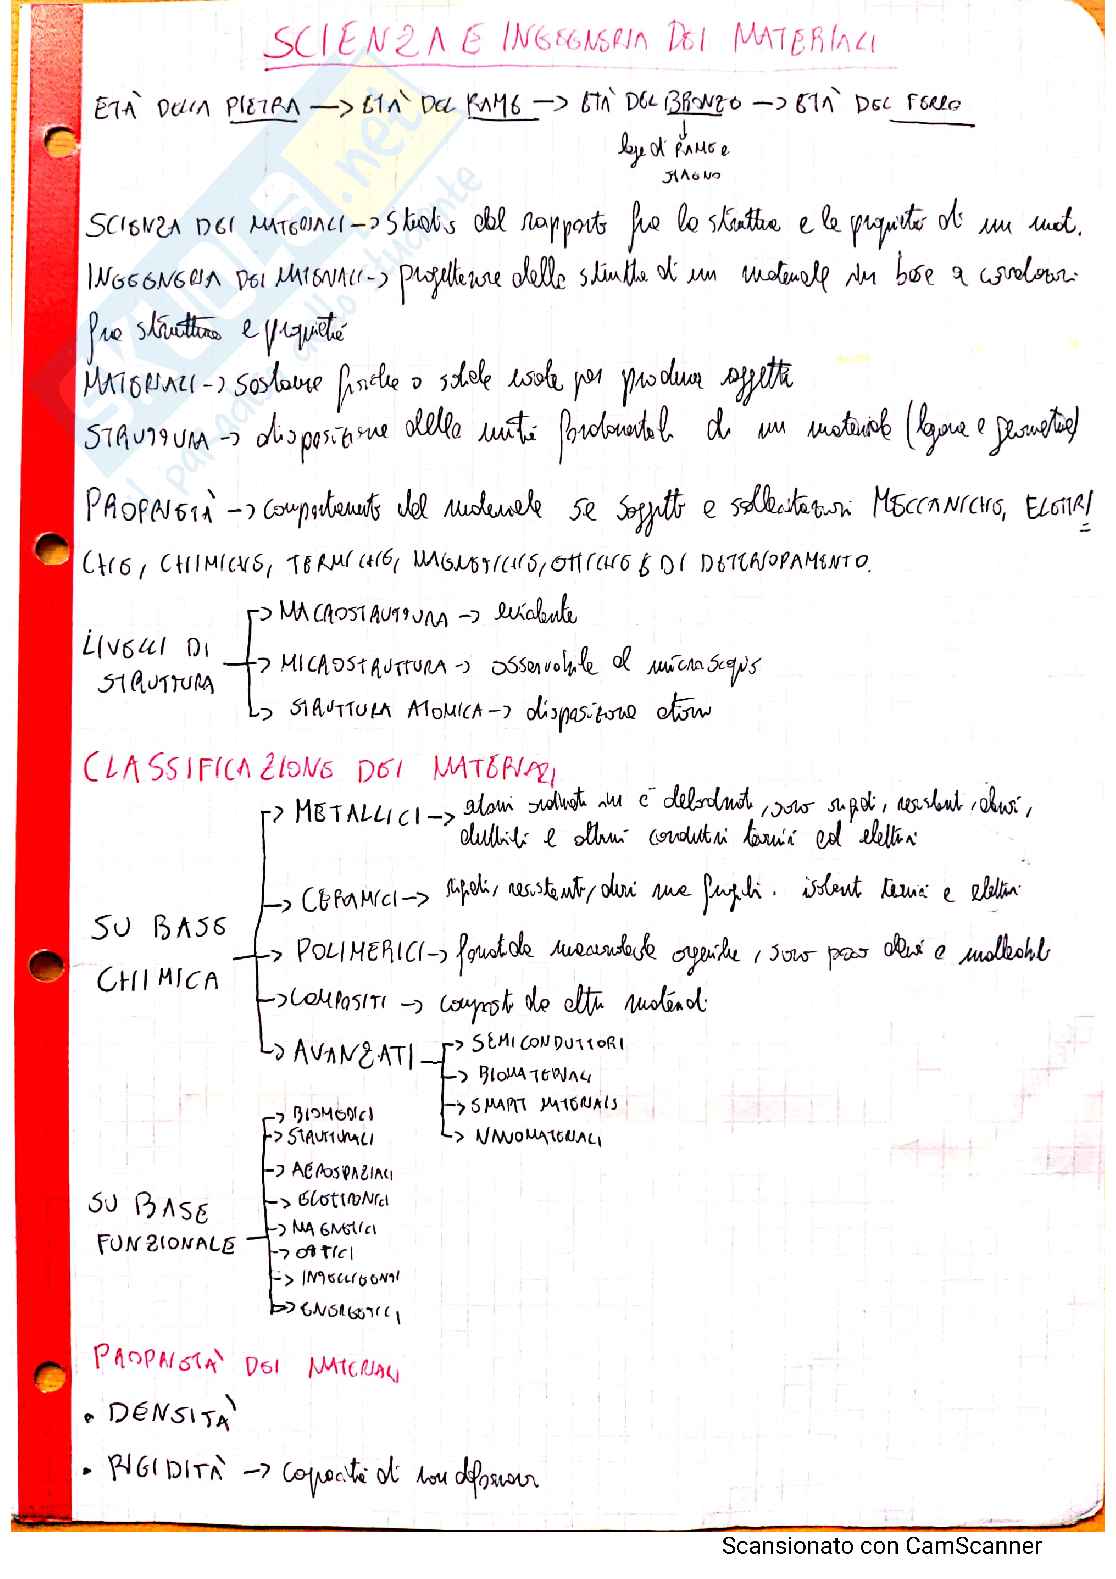 SCIENZA E INGEGNERIA DEI MATERIALI
ETÀ DELLA PIETRA -> ETÀ DEL RAME -> ETÀ DEL BRONZO -> ETÀ DEL FERRO
lega di RAME e
STAGNO
SCIENZA DEI MATERIALI -> Studio del rapporto fra la struttura e le proprietà di un mat.
INGEGNERIA DEI MATERIALI -> progettazione della struttura di un materiale in base a correlazioni
fra struttura e proprietà
MATERIALI -> Sostanze fisiche o solide usate per produrre oggetti
STRUTTURA -> disposizione delle unità fondamentali di un materiale (legame e geometrie)
PROPRIETÀ -> comportamento del materiale se soggetto a sollecitazioni MECCANICHE, ELETTRI
CHE, CHIMICHE, TERMICHE, MAGNETICHE, OTTICHE E DI DETERIORAMENTO.
LIVELLI DI
STRUTTURA
-> MACROSTRUTTURA -> evidente
-> MICROSTRUTTURA -> osservabile al microscopio
-> STRUTTURA ATOMICA -> disposizione atomi
CLASSIFICAZIONE DEI MATERIALI
SU BASE
CHIMICA
-> METALLICI -> atomi ordinati in e⁻ delocalizzati, sono rigidi, resistenti, duri,
duttili e ottimi conduttori termici ed elettrici
-> CERAMICI -> rigidi, resistenti, duri ma fragili. isolanti termici e elettrici
-> POLIMERICI -> formati da macromolecole organiche, sono poco densi e malleabili
-> COMPOSITI -> composti da altri materiali
-> AVANZATI
-> SEMICONDUTTORI
-> BIOMATERIALI
-> SMART MATERIALS
-> NANOMATERIALI
SU BASE
FUNZIONALE
-> BIOMEDICI
-> STRUTTURALI
-> AEROSPAZIALI
-> ELETTRONICI
-> MAGNETICI
-> OTTICI
-> INTELLIGENTI
-> ENERGETICI
PROPRIETÀ DEI MATERIALI
• DENSITÀ
• RIGIDITÀ -> capacità di non deformarsi
SKUOLA.net
Scansionato con CamScanner